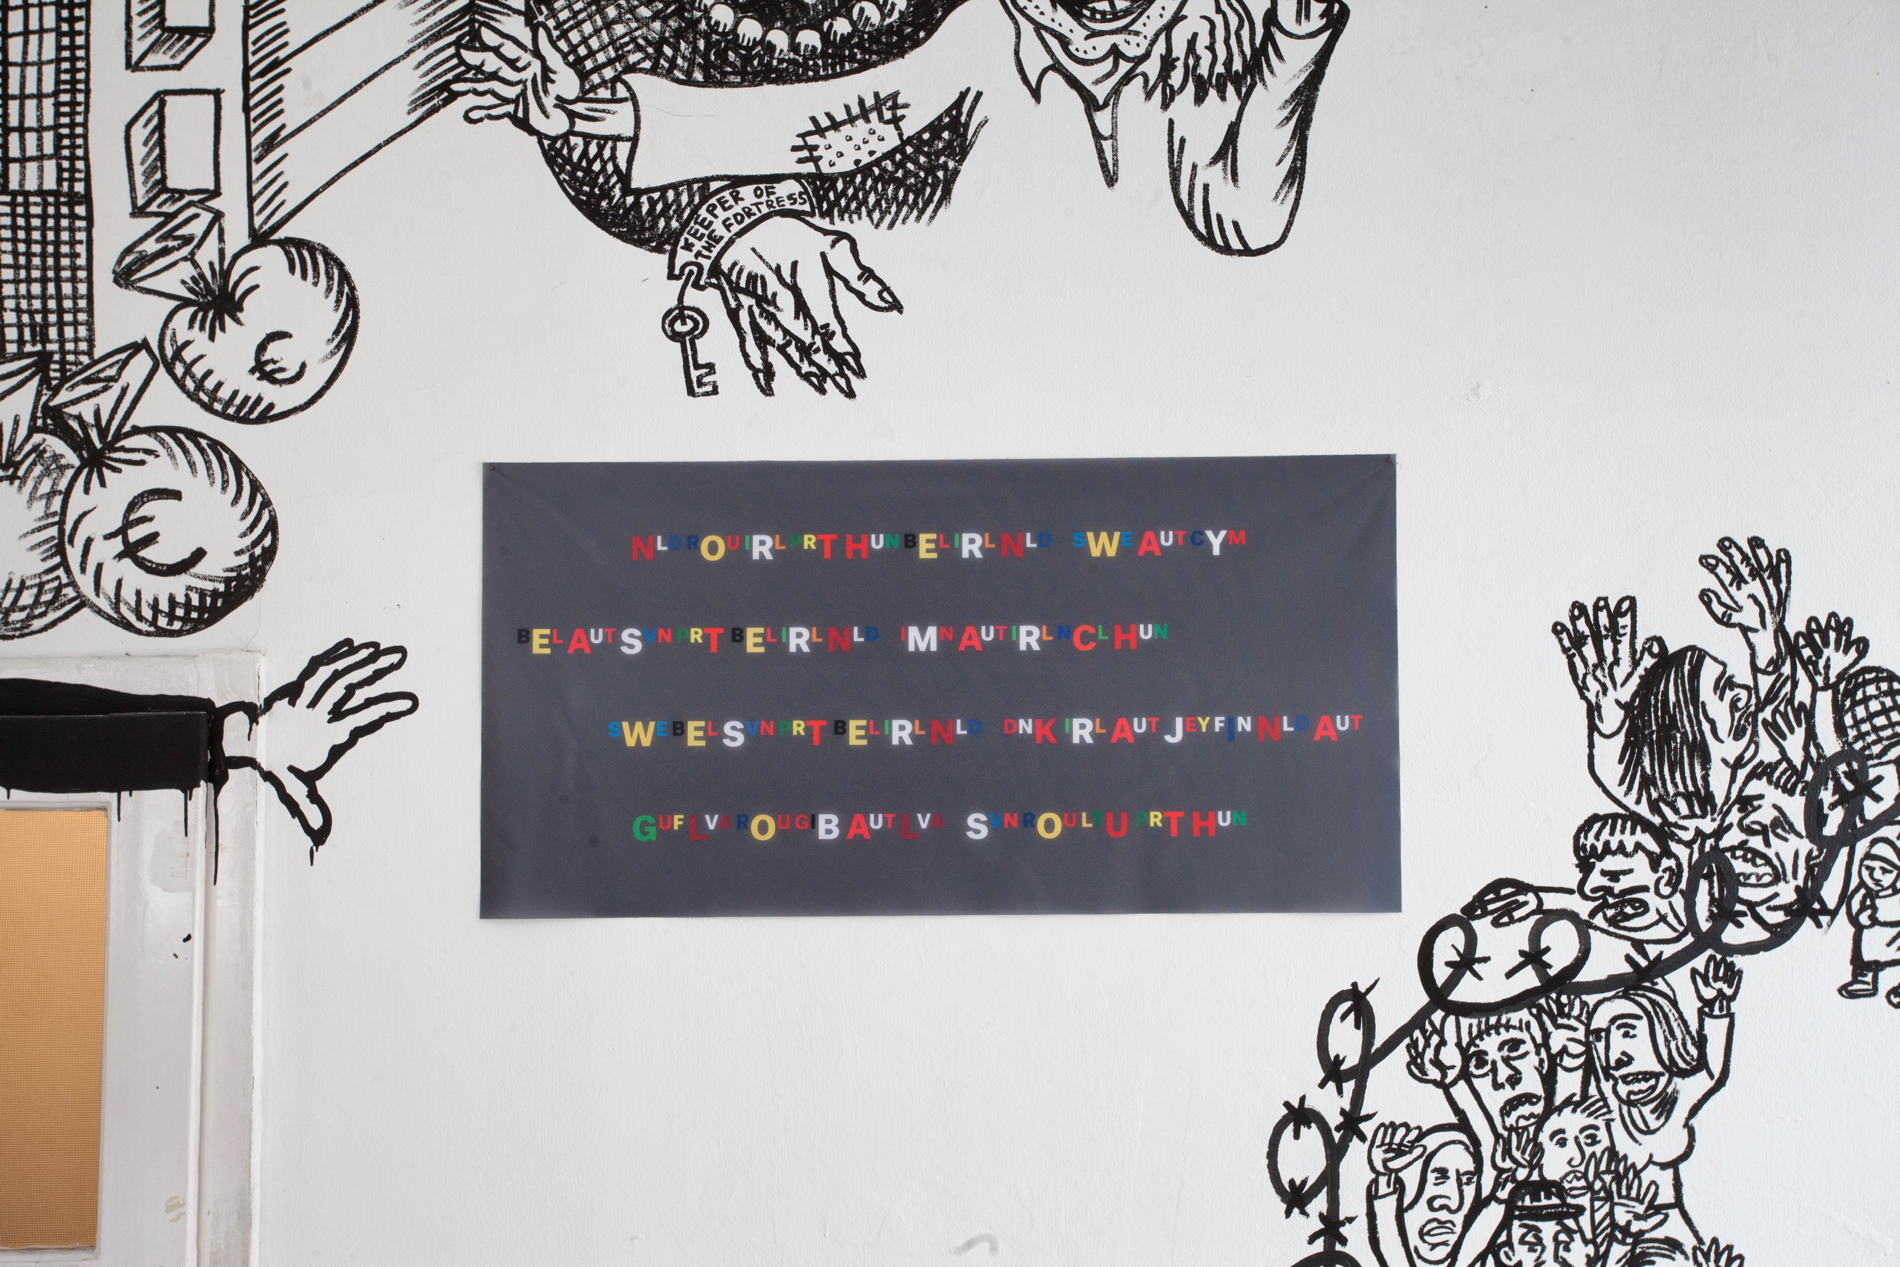 KEEPER OF
THE FORTRESS
NLDROUIRLPRTHUNBELIRLNLD SWEAUTCYM
BELAUTSVNPRTBELIRLNLD IMNAUTIRLNCLHUN
SWEBELSVNPRTBELIRLNLD DNKIRLAUTJEYFINNLDAUT
GUFLVAROUGIBAUTLVA SVNROULTUPRTHUN